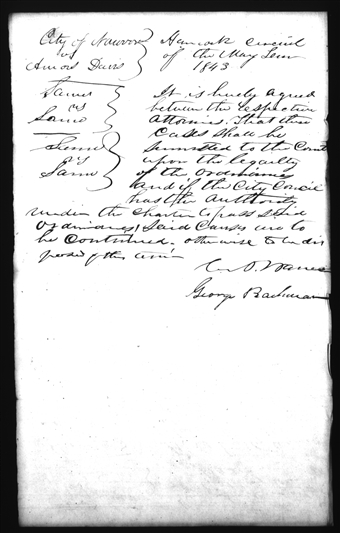 City of Nauvoo
vs
Amos Davis
Hancock Circuit
of the May Term
1843
Same
vs
Same
Same
vs
Same
It is hereby agreed
between the respective
attornies. That these
Cases shall be
submitted to the Court
upon the legality
of the Ordinance
and if the City Council
has the Authority
under the Charter to pass said
Ordinances, Said Causes are to
be Continued. otherwise to be dis
posed of this term
George Bachman